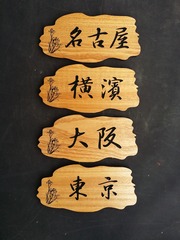 名古屋
横濱
大阪
東京